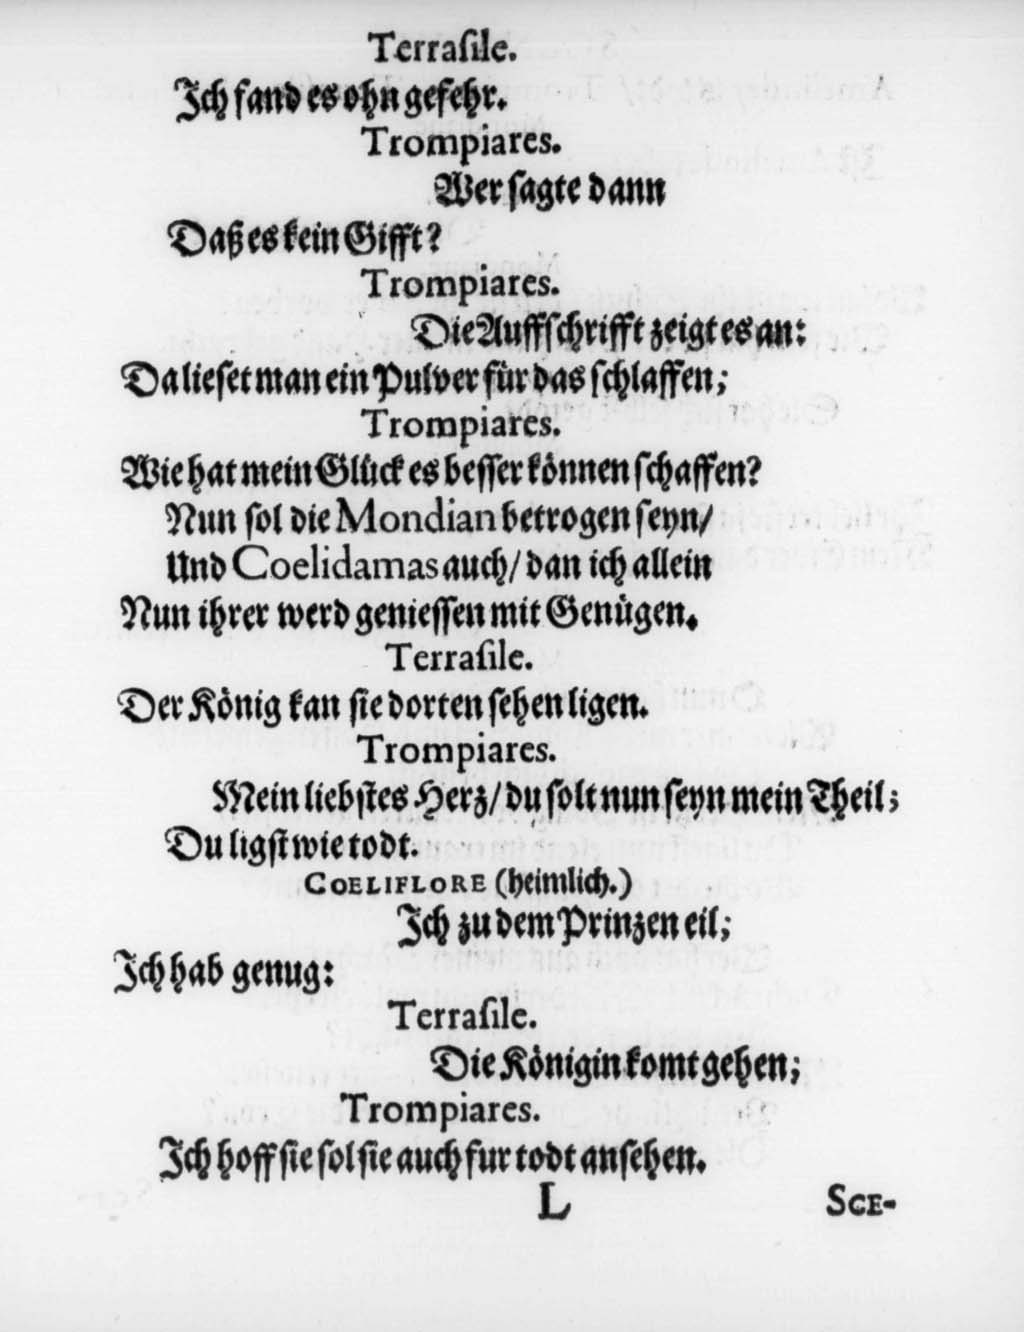 Terraſile.
Ich fand es ohn gefehr.
Trompiares.
Wer ſagte dann
Daß es kein Gifft?
Trompiares.
Die Auffſchrifft zeigt es an:
Da lieſet man ein Pulver für das ſchlaffen;
Trompiares.
Wie hat mein Glück es beſſer können ſchaffen?
Nun ſol die Mondian betrogen ſeyn/
Und Coelidamas auch/ dan ich allein
Nun ihrer werd genieſſen mit Genügen.
Terraſile.
Der König kan ſie dorten ſehen ligen.
Trompiares.
Mein liebſtes Herz/ du ſolt nun ſeyn mein Theil;
Du ligſt wie todt.
COELIFLORE (heimlich.)
Ich zu dem Prinzen eil;
Ich hab genug:
Terraſile.
Die Königin komt gehen;
Trompiares.
Ich hoff ſie ſol ſie auch fur todt anſehen.
L SCE-